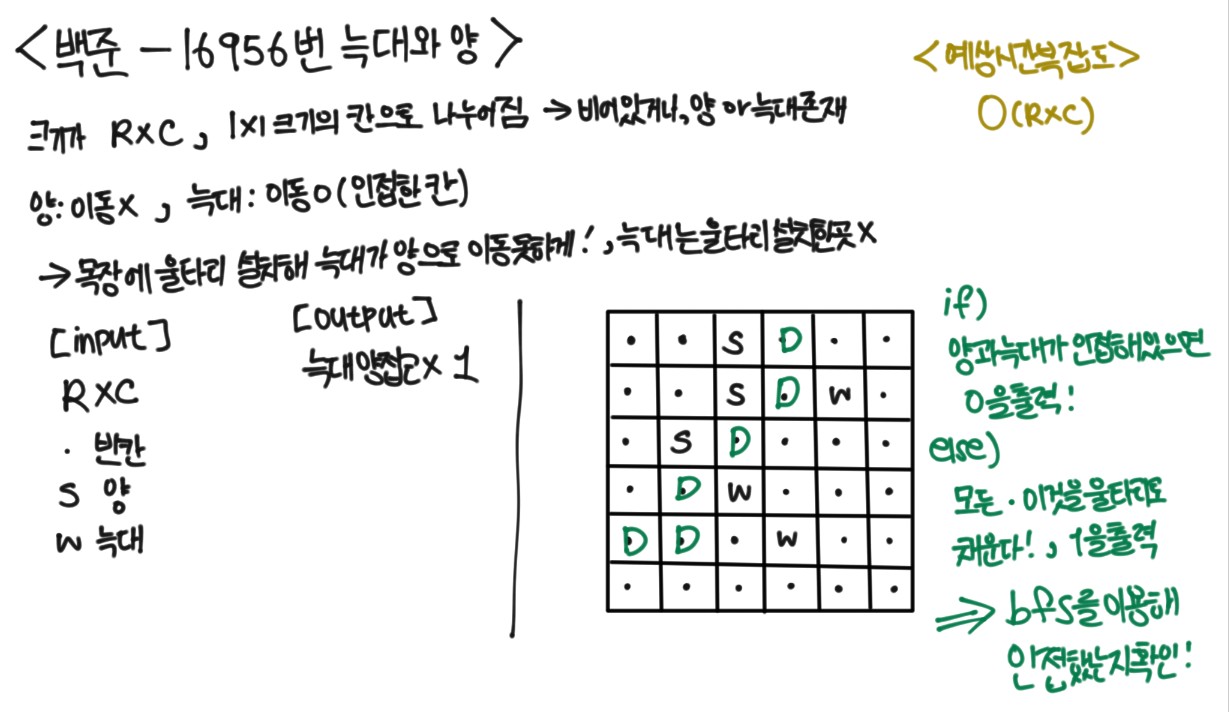 <백준 - 16956번 늑대와 양>
<예상시간복잡도>
O(R×C)
크기가 R×C, 1×1 크기의 칸으로 나누어짐 → 비어있거나, 양 or 늑대존재
양: 이동×, 늑대: 이동O(인접한 칸)
→ 목장에 울타리 설치해 늑대가 양으로 이동못하게!, 늑대는울타리설치한곳×
[input]
R×C
· 빈칸
S 양
W 늑대
[output]
늑대양접근× 1
· · S D · ·
· · S D W ·
· S D · · ·
· D W · · ·
D D · W · ·
· · · · · ·
if)
양과늑대가 인접해있으면
0을출력!
else)
모든 · 이것을울타리로
채운다!, 1을출력
⇒ bfs를이용해
인접했는지확인!